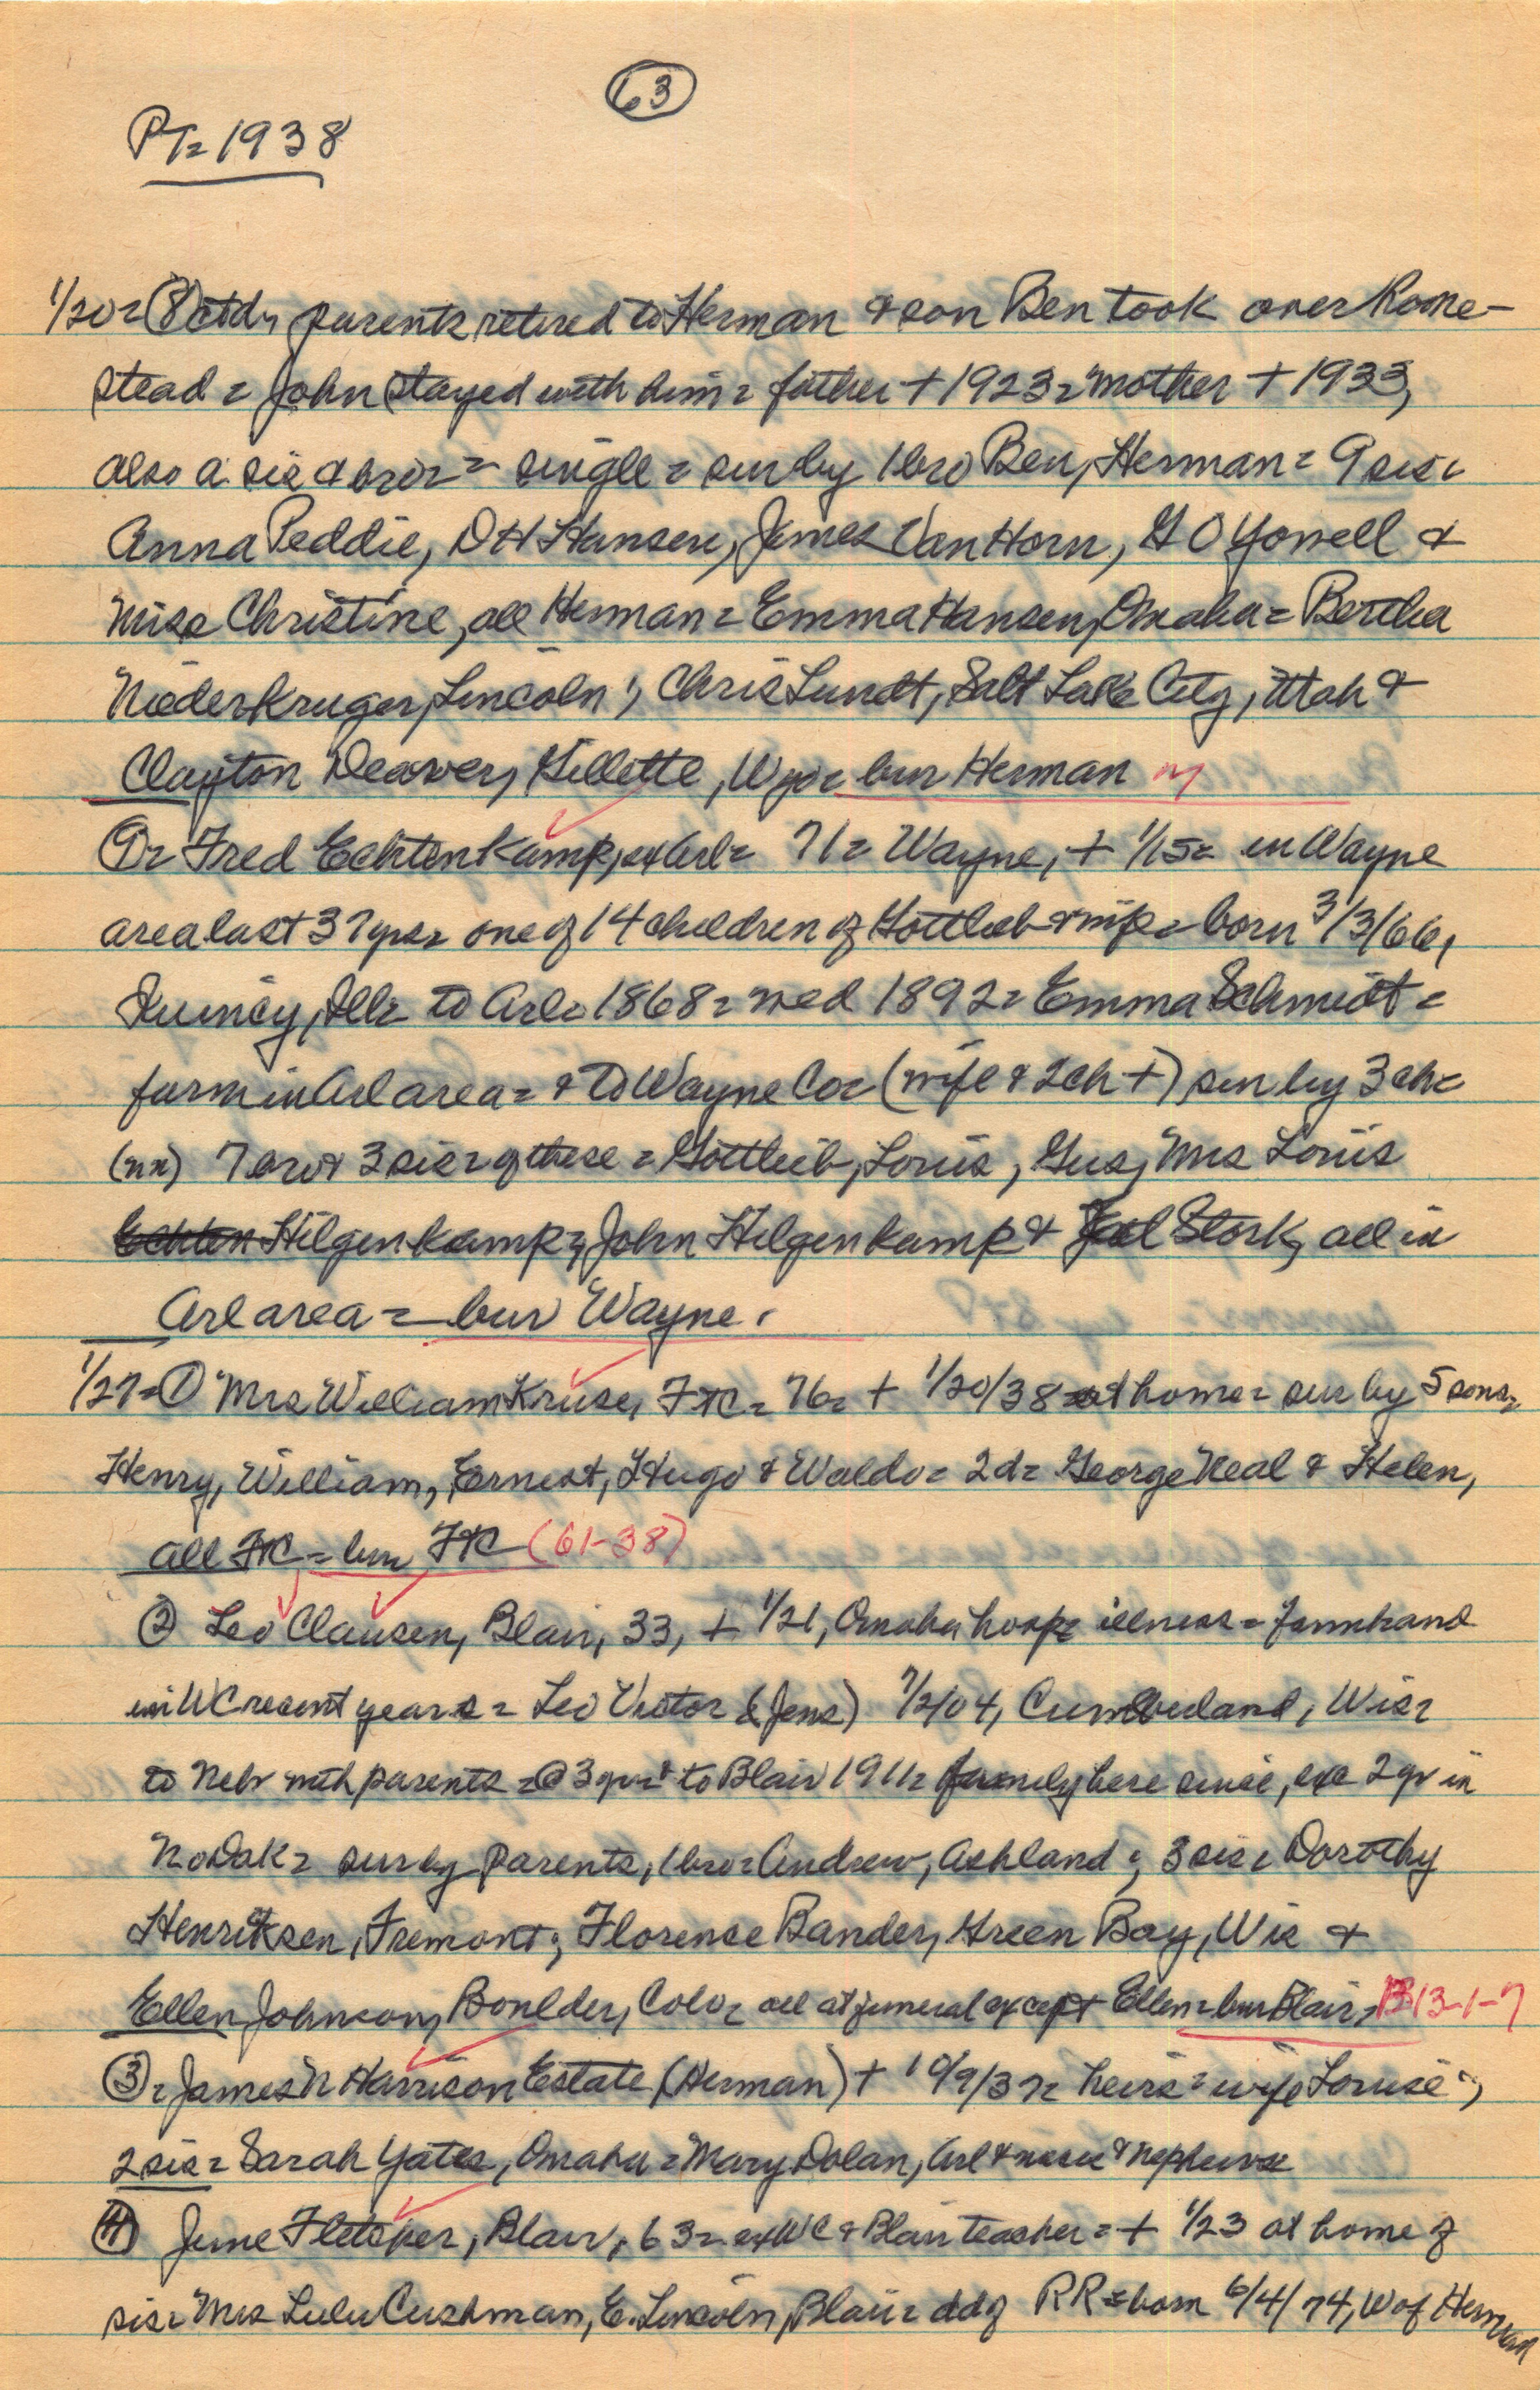 63
PT= 1938
1/20= (8) ctd, parents retired to Herman & son Ben took over home-
stead = John stayed with him = father + 1923 = mother + 1933,
also a sis & bro = single = sur by 1 bro Ben, Herman = 9 sis =
Anna Peddie, DH Hansen, James Van Horn, G O Yowell &
Miss Christine, all Herman = Emma Hansen, Omaha = Bertha
Niederkruger, Lincoln; Chris Lundt, Salt Lake City, Utah &
Clayton Deaver, Gillette, Wyo = bur Herman
(9)= Fred Echtenkamp, exArl= 71= Wayne, + 1/15= in Wayne
area last 37 yrs= one of 14 children of Gottlieb & wife = born 3/3/66,
Quincy, Ill= to Arl= 1868= wed 1892= Emma Schmidt =
farm in Arl area = & to Wayne Co= (wife & 2 ch +) sur by 3 ch=
(nx) 7 bro & 3 sis = of these = Gottlieb, Louis, Gus, Mrs Louis
Echten Hilgenkamp, John Hilgenkamp & Stork, all in
Arl area = bur Wayne.
1/27= (1) Mrs William Kruse, FtC= 76= + 1/20/38 = at home = sur by 5 sons=
Henry, William, Ernest, Hugo & Waldo= 2d= George Neal & Helen,
all FtC = bur FtC (61-38)
(2) Leo Clausen, Blair, 33, + 1/21, Omaha hosp= illness = farmhand
in WC recent years = Leo Victor (Jens) 7/2/04, Cumberland, Wis=
to Nebr with parents = @ 3 yr= to Blair 1911= family here since, exc 2 yr in
NoDak= sur by parents, 1 bro= Andrew, Ashland; 3 sis= Dorothy
Henriksen, Fremont; Florence Bander, Green Bay, Wis &
Ellen Johnson, Boulder, Colo= all at funeral except Ellen = bur Blair, B13-1-7
(3)= James N Harrison Estate (Herman) + 10/9/37= heirs = wife Louise;
2 sis = Sarah Yates, Omaha = Mary Dolan, Arl & niece & nephews
(4) June Fletcher, Blair, 63= exWC & Blair teacher = + 1/23 at home of
sis= Mrs Lulu Cushman, E. Lincoln, Blair= dd of RR = born 6/4/74, W of Herman